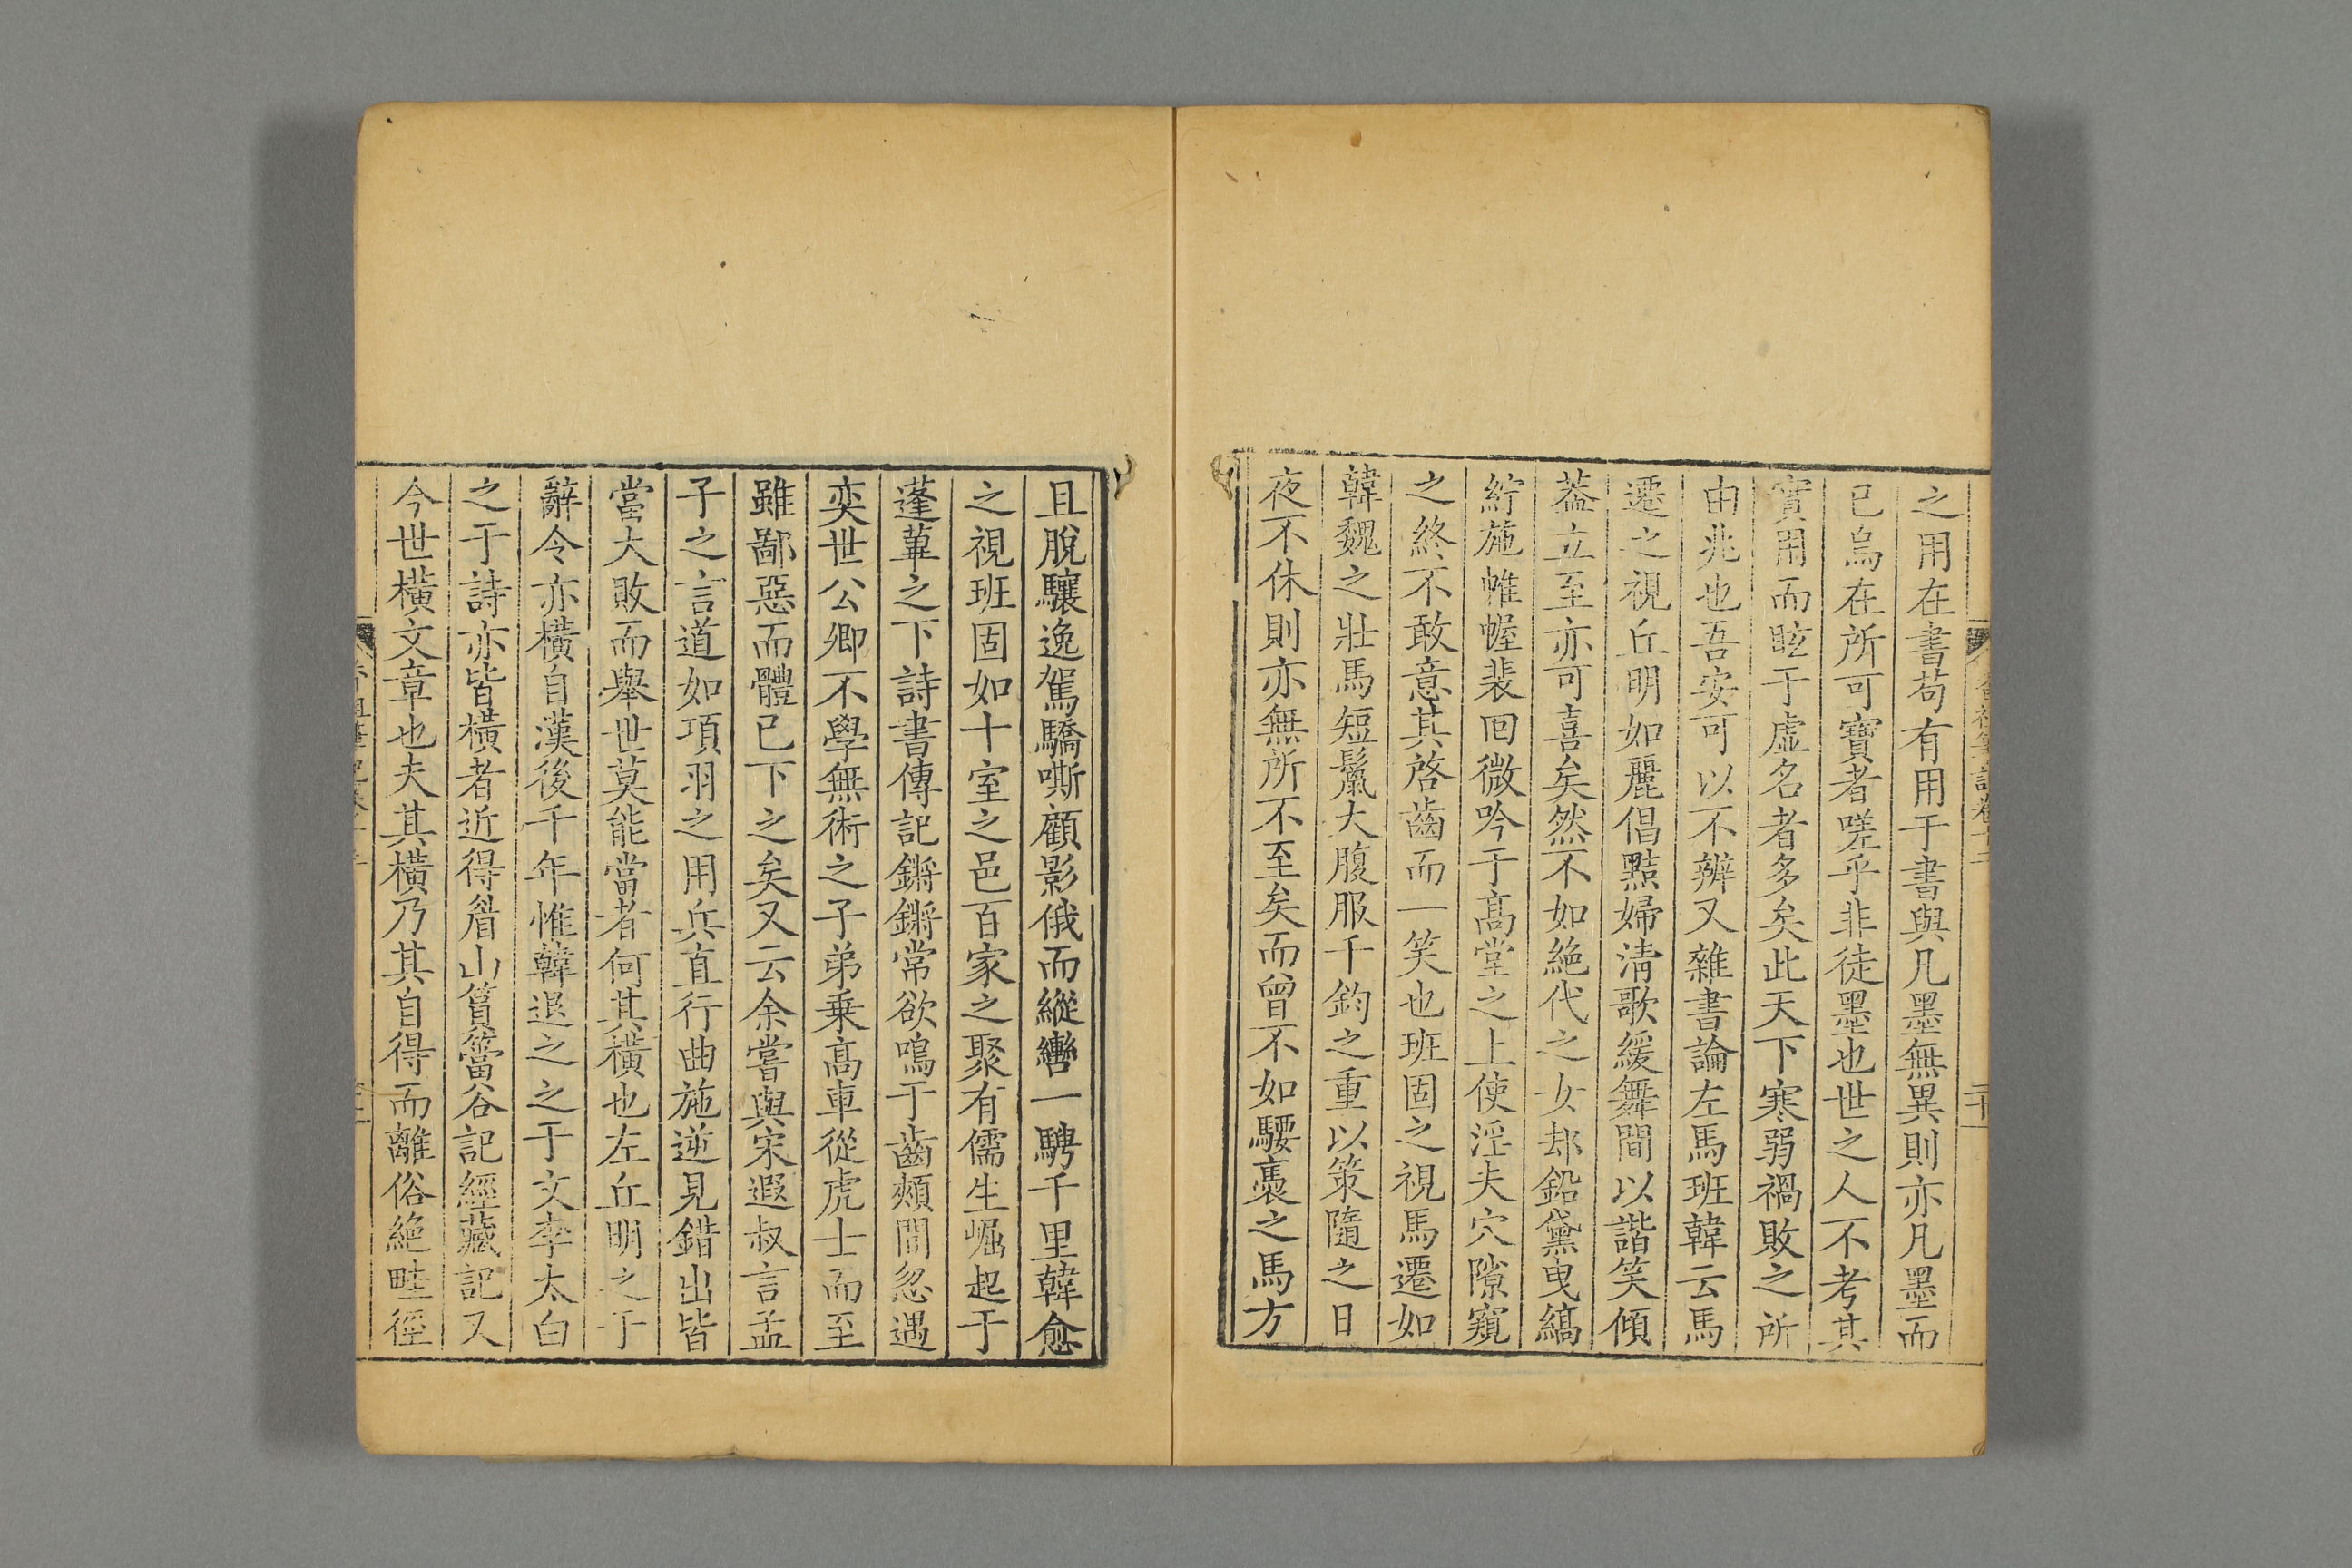 之用在書苟有用于書與凡墨無異則亦凡墨而
已烏在所可寶者嗟乎非徒墨也世之人不考其
實用而眩于虛名者多矣此天下寒弱禍敗之所
由兆也吾安可以不辨又雜書論左馬班韓云馬
遷之視丘明如麗倡黠婦淸歌緩舞間以諧笑傾
葢立至亦可喜矣然不如絶代之女却鉛黛曳縞
紵施帷幄裴回微吟于高堂之上使淫夫穴隙窺
之終不敢意其啓齒而一笑也班固之視馬遷如
韓魏之壯馬短鬣大腹服千鈞之重以策隨之日
夜不休則亦無所不至矣而曾不如騕褭之馬方
且脫驤逸駕驕嘶顧影俄而縱轡一騁千里韓愈
之視班固如十室之邑百家之聚有儒生崛起于
蓬蓽之下詩書傳記鏘鏘常欲鳴于齒頰間忽遇
奕世公卿不學無術之子弟乗高車從虎士而至
雖鄙惡而體已下之矣又云余嘗與宋遐叔言孟
子之言道如項羽之用兵直行曲施逆見錯出皆
當大敗而舉世莫能當者何其橫也左丘明之于
辭令亦橫自漢後千年惟韓退之之于文李太白
之于詩亦皆橫者近得眉山篔簹谷記經藏記又
今世橫文章也夫其橫乃其自得而離俗絶畦徑